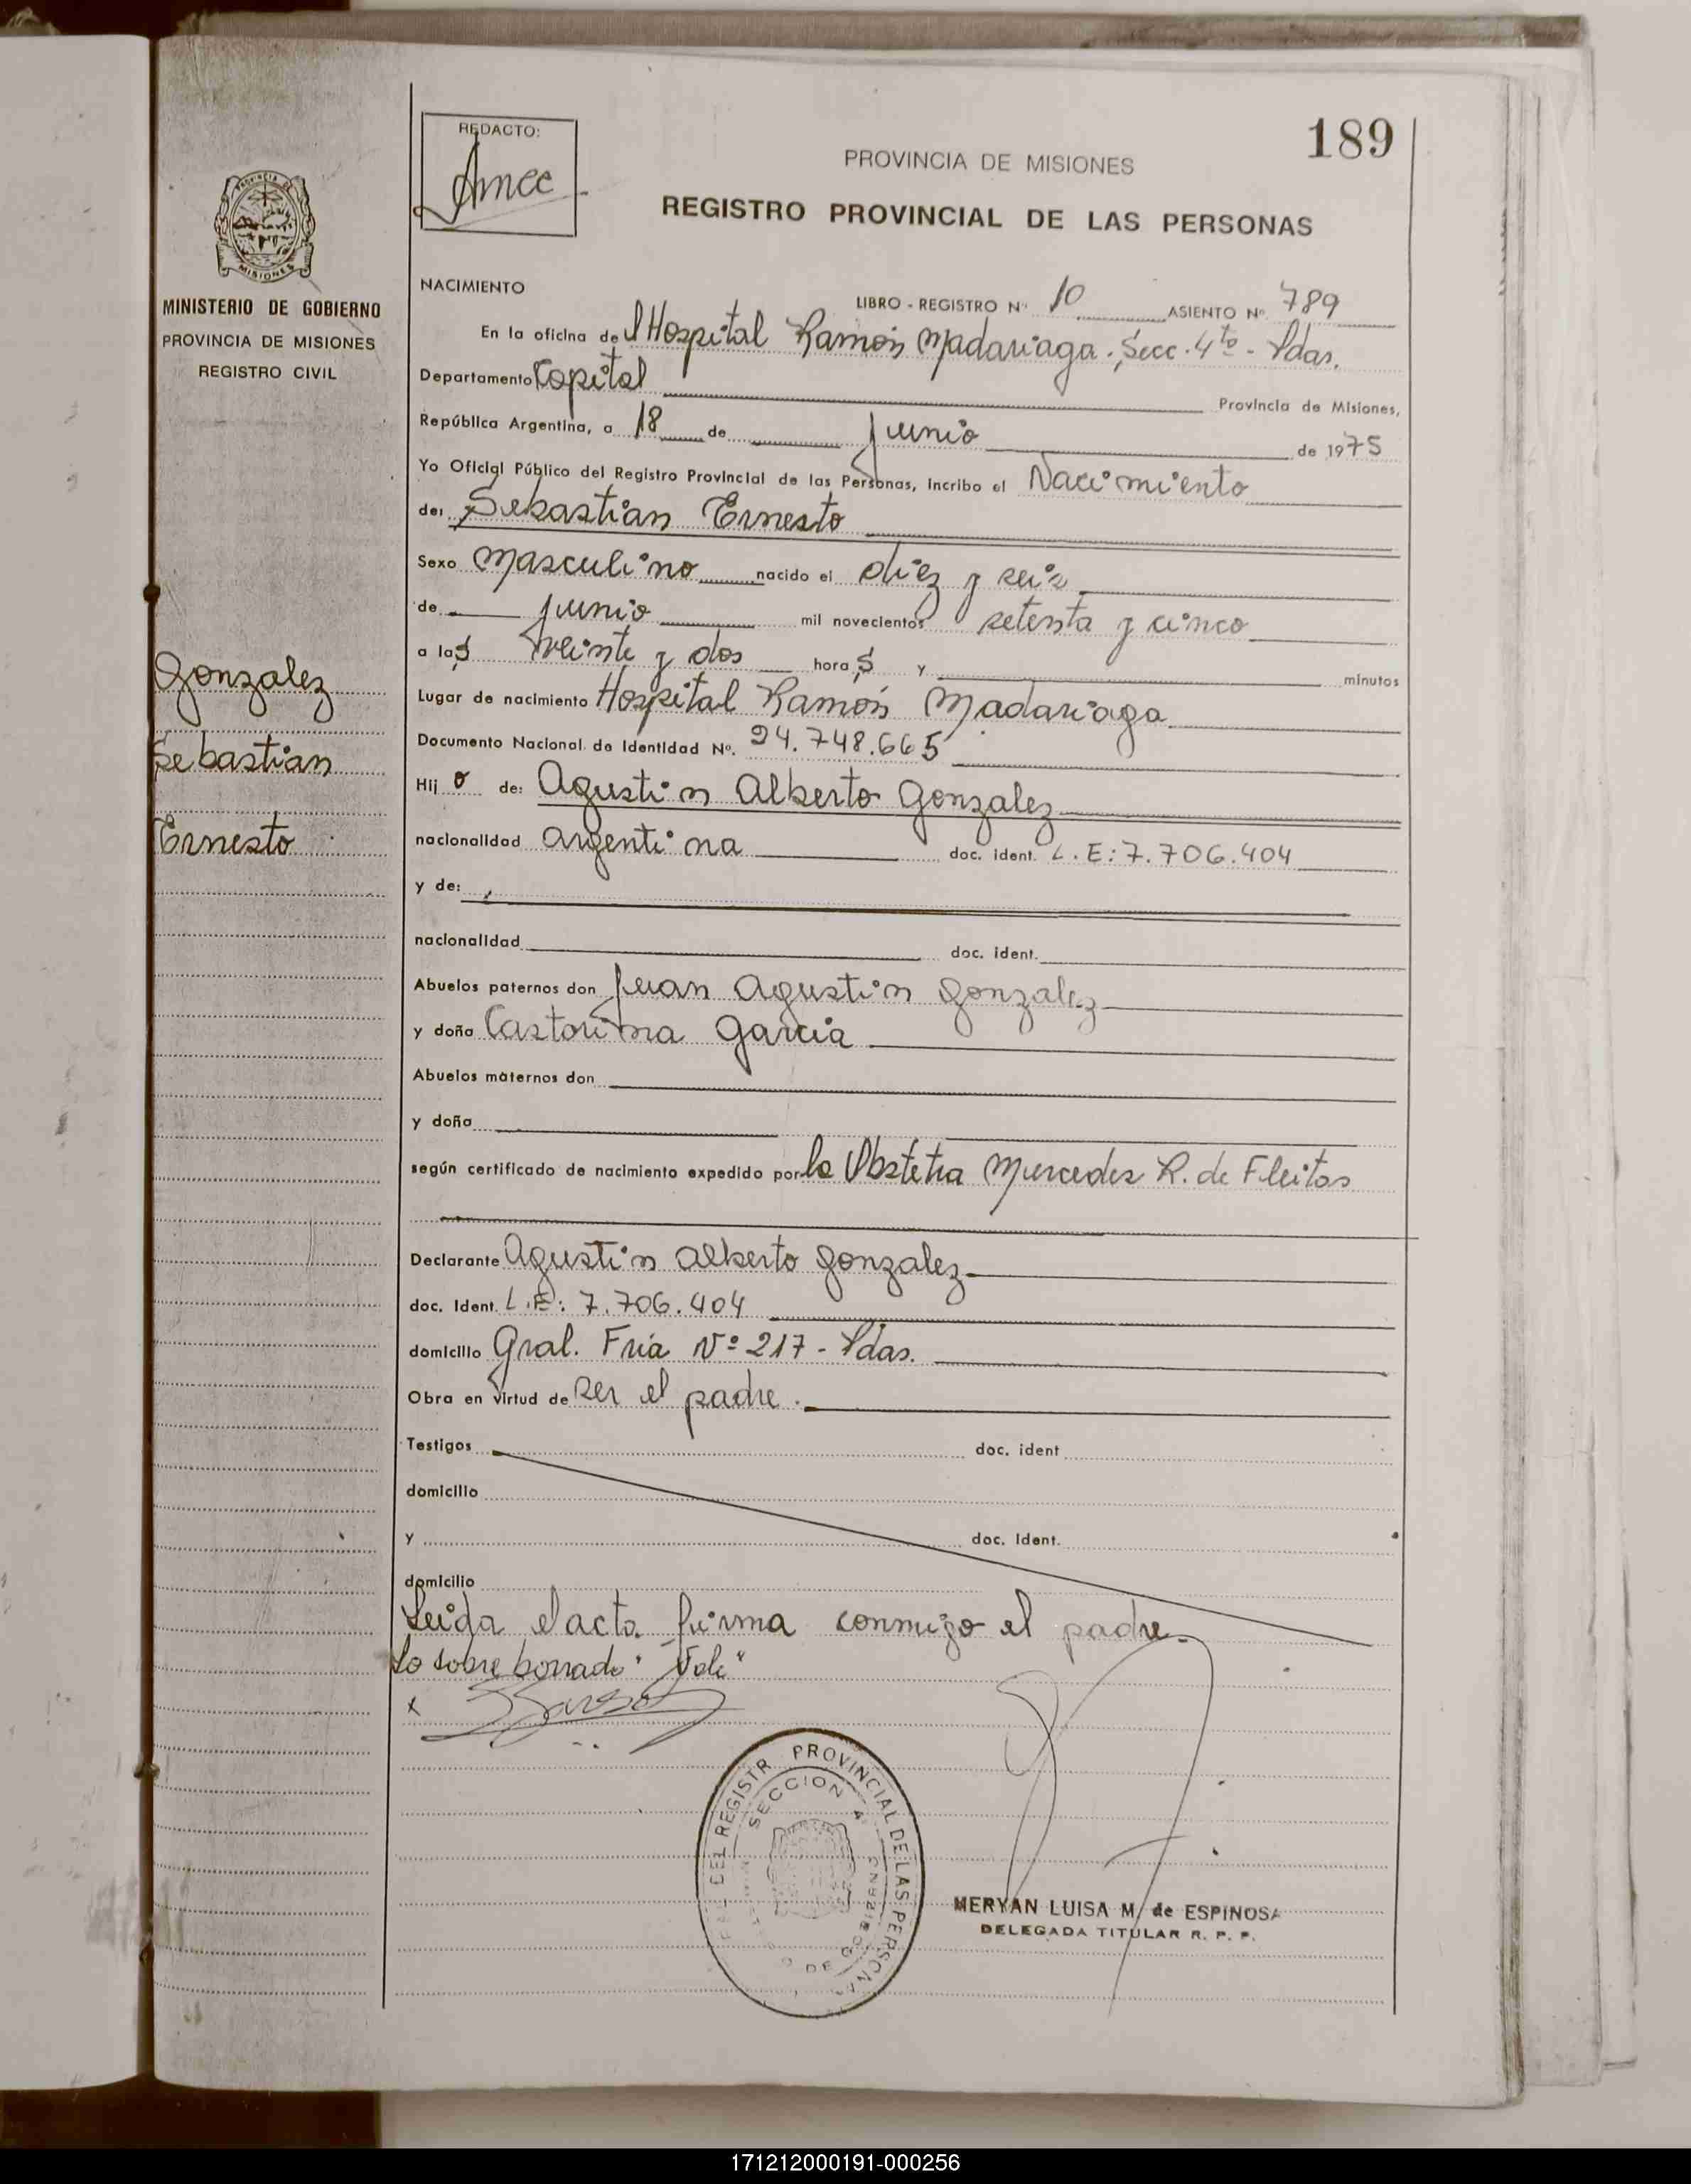 189
REDACTO:
PROVINCIA DE MISIONES
REGISTRO PROVINCIAL DE LAS PERSONAS
PROVINCIA DE
MISIONES
MINISTERIO DE GOBIERNO
PROVINCIA DE MISIONES
REGISTRO CIVIL
Gonzalez
Sebastian
Ernesto
NACIMIENTO
LIBRO - REGISTRO Nº 10 ASIENTO Nº 789
En la oficina del Hospital Ramón Madariaga. Secc. 4ta - Pdas.
Departamento Capital Provincia de Misiones,
República Argentina, a 18 de junio de 1975
Yo Oficial Público del Registro Provincial de las Personas, incribo el Nacimiento
de: Sebastian Ernesto
Sexo masculino nacido el diez y seis
de junio mil novecientos setenta y cinco
a las veinte y dos horas y minutos
Lugar de nacimiento Hospital Ramón Madariaga
Documento Nacional de Identidad Nº. 24.748.665
Hijo de: Agustin Alberto Gonzalez
nacionalidad argentina doc. ident. L.E: 7.706.404
y de:
nacionalidad doc. ident.
Abuelos paternos don Juan Agustin Gonzalez
y doña Castorina Garcia
Abuelos maternos don
y doña
según certificado de nacimiento expedido por la Obstetra Mercedes R. de Fleitas
Declarante Agustin Alberto Gonzalez
doc. Ident. L.E: 7.706.404
domicilio Gral. Fria Nº 217 - Pdas.
Obra en virtud de ser el padre.
Testigos doc. ident
domicilio
y doc. Ident.
domicilio
Leida el acta firma conmigo el padre.
Lo sobre borrado "Vale"
x
DEL REGISTR PROVINCIAL DE LAS PERSONA
SECCION 4
DE GOBIERNO
MERYAN LUISA M. de ESPINOSA
DELEGADA TITULAR R. P. P.
171212000191-000256